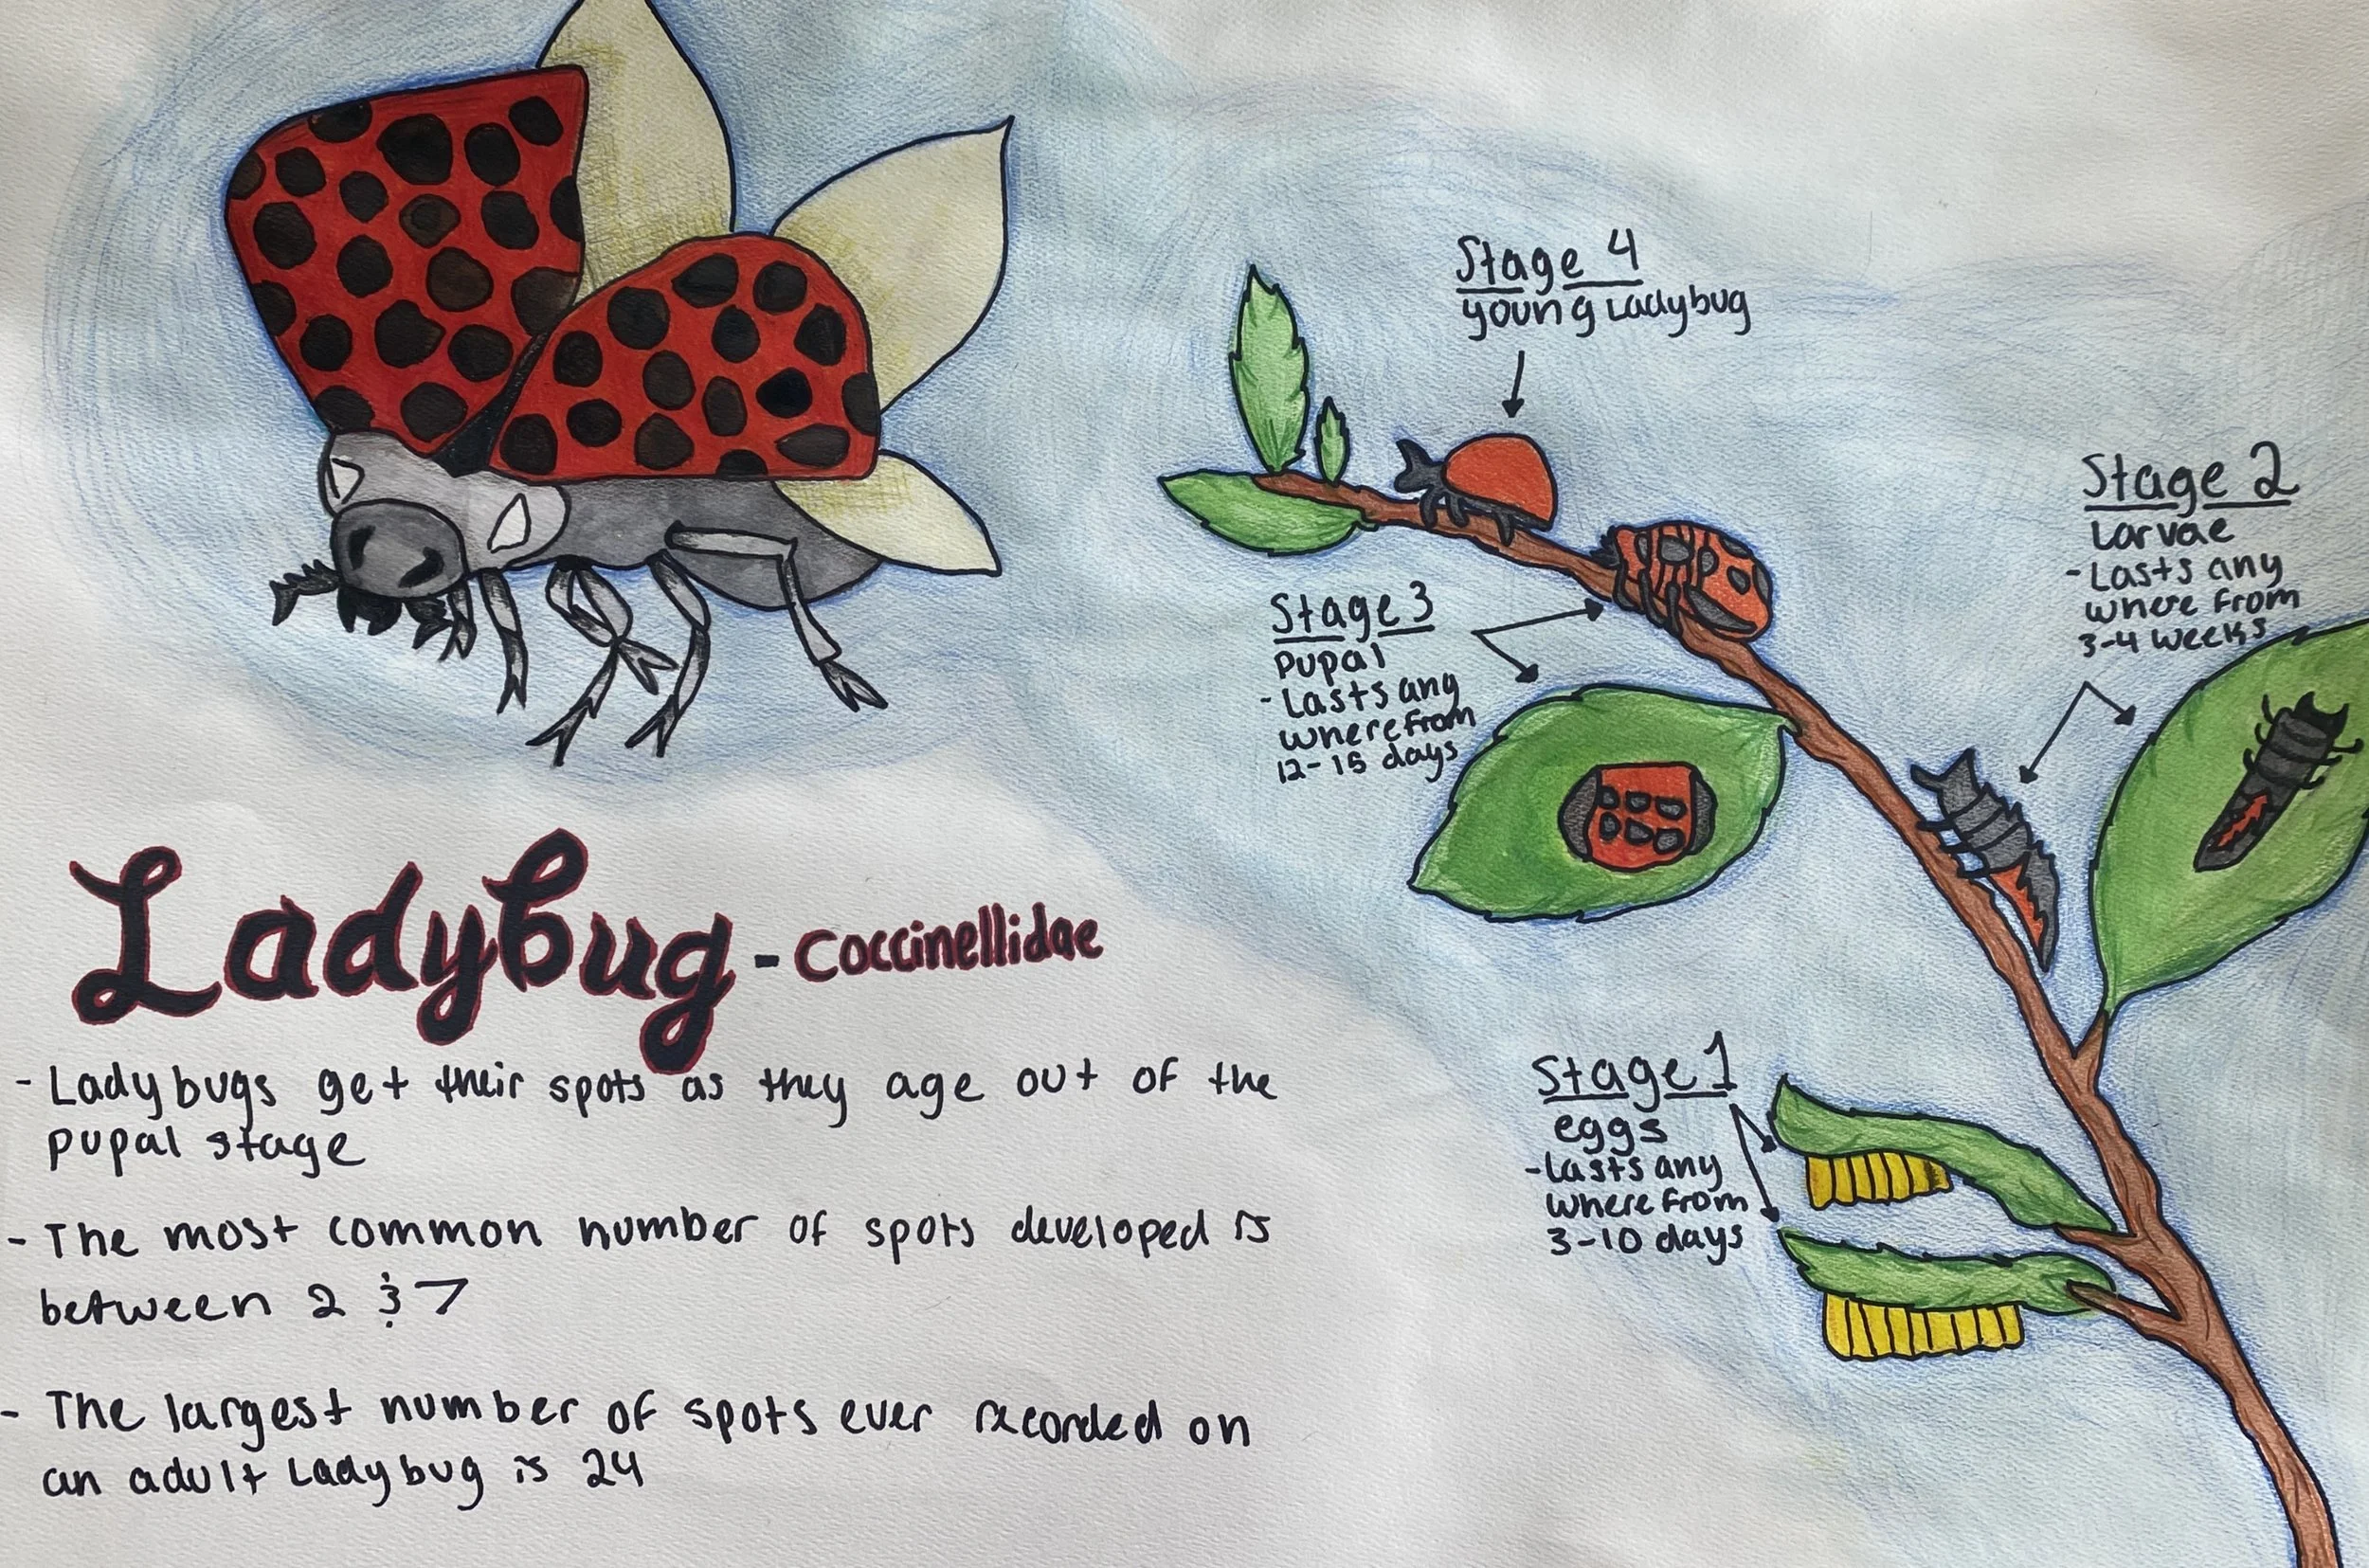 Stage 4
young Ladybug
Stage 2
Larvae
-Lasts any
where from
3-4 weeks
Stage 3
pupal
-Lasts any
where from
12-15 days
Ladybug - Coccinellidae
-Ladybugs get their spots as they age out of the
pupal stage
-The most common number of spots developed is
between 2 & 7
-The largest number of spots ever recorded on
an adult Ladybug is 24
Stage 1
eggs
-Lasts any
where from
3-10 days